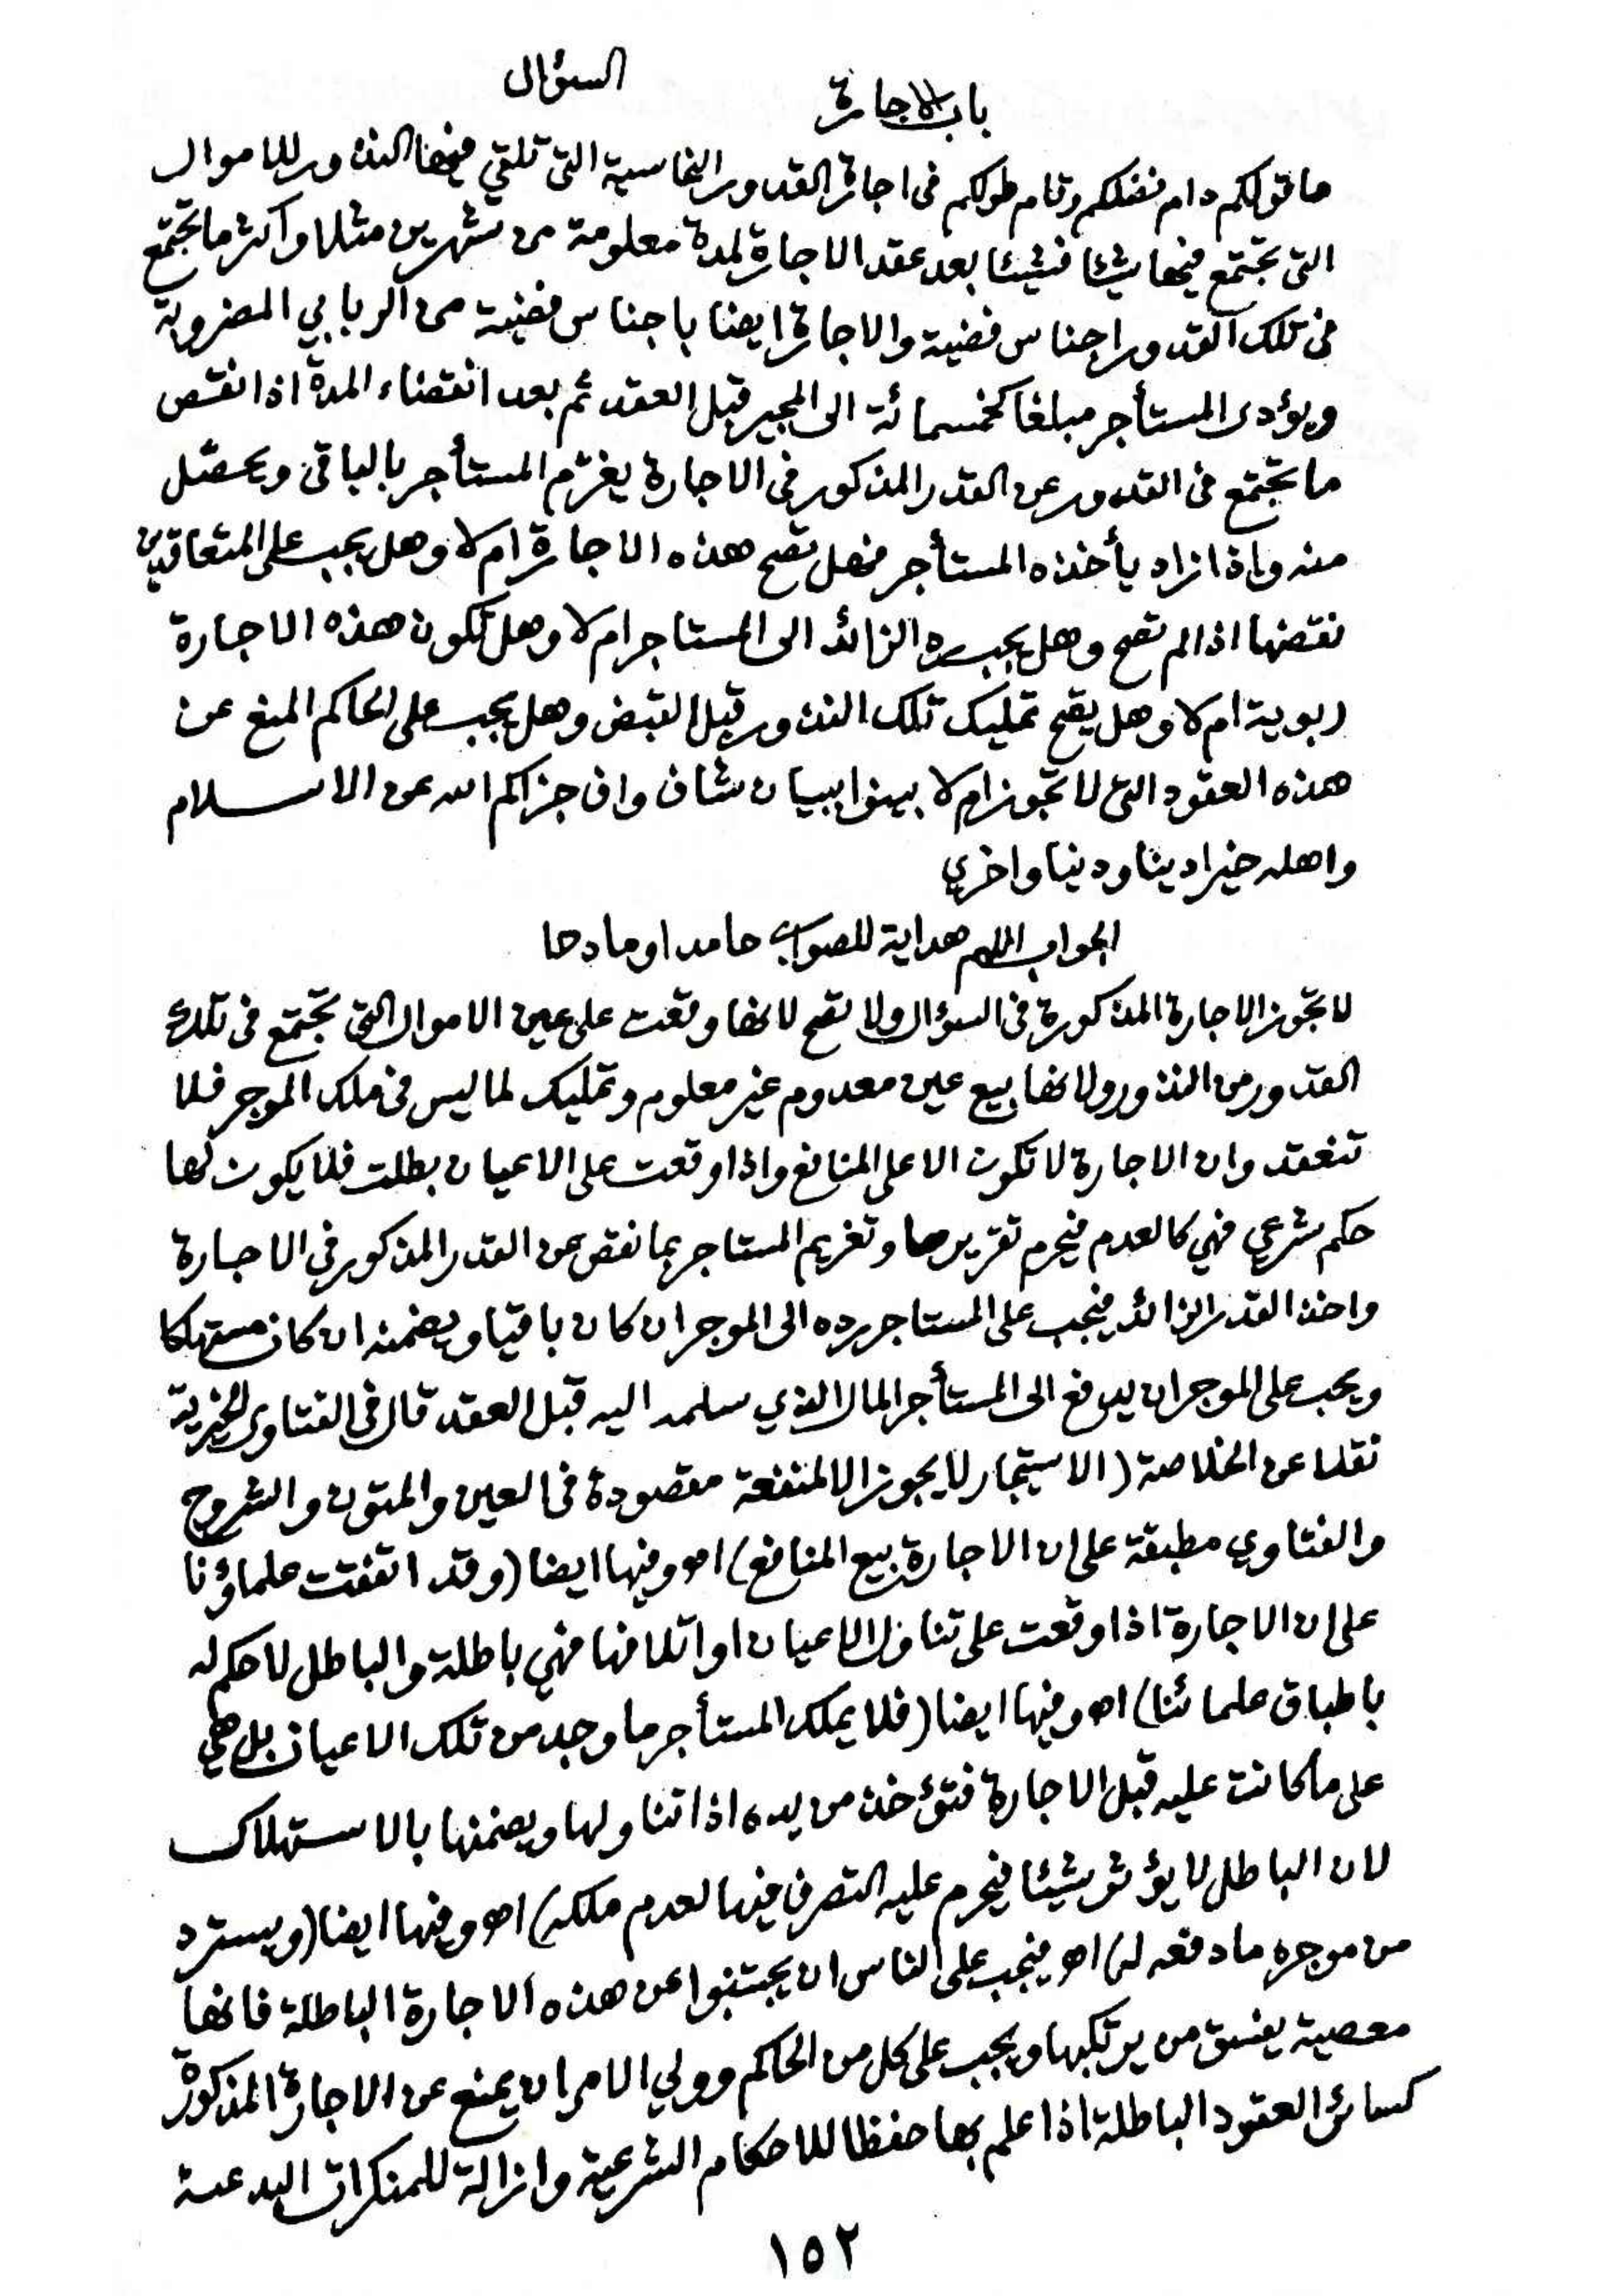 باب الاجارة
السؤال
ما قولكم دام فضلكم وتام طولكم فى اجارة القدور النحاسية التى تلقي فيها النذور للاموال
التى تجتمع فيها شيئا فشيئا بعد عقد الاجارة لمدة معلومة من شهرين مثلا واكثر ما تجتمع
فى تلك القدور اجناس فضية والاجارة ايضا باجناس فضية من الربابي المضروبة
ويؤدى المستأجر مبلغا كخمسمائة الى المجير قبل العقد ثم بعد انقضاء المدة اذا انقص
ما تجتمع فى القدور عن القدر المذكور فى الاجارة يغرم المستأجر بالباقى ويحصل
منه واذا زاد يأخذه المستأجر فهل تصح هذه الاجارة ام لا وهل يجب على المتعاقدين
نقضها اذا لم تصح وهل يجب رد الزائد الى المستاجر ام لا وهل تكون هذه الاجارة
ربوية ام لا وهل يصح تمليك تلك النذور قبل القبض وهل يجب على الحاكم المنع عن
هذه العقود التى لا تجوز ام لا بينوا ببيان شاف واف جزاكم الله عن الاسلام
واهله خيرا دينا ودنيا واخري
الجواب اللهم هداية للصواب حامدا ومادحا
لا تجوز الاجارة المذكورة فى السؤال ولا تصح لانها وقعت على عين الاموال التى تجتمع فى تلك
القدور من النذور ولانها بيع عين معدوم غير معلوم وتمليك لما ليس فى ملك الموجر فلا
تنعقد وان الاجارة لا تكون الا على المنافع واذا وقعت على الاعيان بطلت فلا يكون لها
حكم شرعي فهي كالعدم فيحرم تقريرها وتغريم المستاجر بما نقص عن القدر المذكور فى الاجارة
واخذ القدر الزائد فيجب على المستاجر رده الى الموجر ان كان باقيا ويضمنه ان كان مستهلكا
ويجب على الموجر ان يدفع الى المستأجر المال الذي سلمه اليه قبل العقد قال فى الفتاوى الخيرية
نقلا عن الخلاصة (الاستيجار لا يجوز الا لمنفعة مقصودة فى العين والمتون والشروح
والفتاوي مطبقة على ان الاجارة بيع المنافع) اهـ وفيها ايضا (وقد اتفقت علماؤنا
على ان الاجارة اذا وقعت على تناول الاعيان او اتلافها فهي باطلة والباطل لا حكم له
باطباق علمائنا) اهـ وفيها ايضا (فلا يملك المستأجر ما وجد من تلك الاعيان بل هي
على ما كانت عليه قبل الاجارة فتؤخذ من يده اذا تناولها ويضمنها بالاستهلاك
لان الباطل لا يؤثر شيئا فيحرم عليه التصرف فيها لعدم ملكه) اهـ وفيها ايضا (ويسترد
من موجره ما دفعه له) اهـ فيجب على الناس ان يجتنبوا عن هذه الاجارة الباطلة فانها
معصية يفسق من يرتكبها ويجب على كل من الحاكم وولي الامر ان يمنع عن الاجارة المذكورة
كسائر العقود الباطلة اذا علم بها حفظا للاحكام الشرعية وازالة للمنكرات البدعية
١٥٢